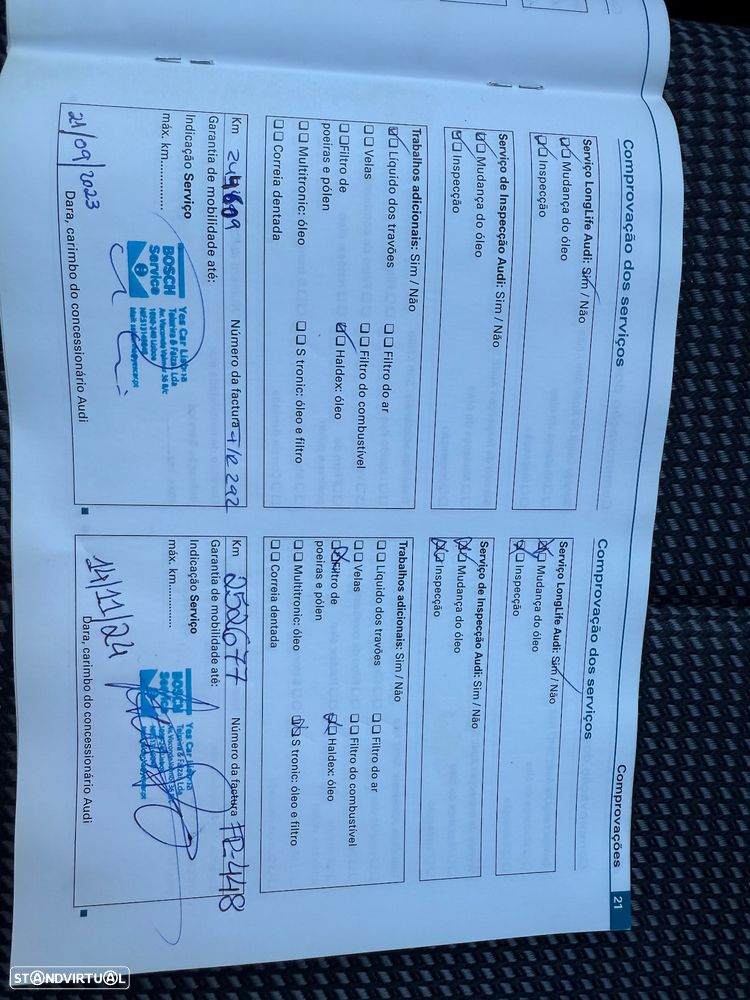 Comprovações 21
Comprovação dos serviços
Serviço LongLife Audi: Sim / Não
Mudança do óleo
Inspecção
Serviço de Inspecção Audi: Sim / Não
Mudança do óleo
Inspecção
Trabalhos adicionais: Sim / Não
Líquido dos travões
Velas
Filtro de
poeiras e pólen
Multitronic: óleo
Correia dentada
Filtro do ar
Filtro do combustível
Haldex: óleo
S tronic: óleo e filtro
Km
Número da factura FR 292
Garantia de mobilidade até:
Indicação Serviço
máx. km..............
21/09/2023
BOSCH
Service
Yes Car Lisboa
Teixeira & Faiza, Lda
Dara, carimbo do concessionário Audi
Comprovação dos serviços
Serviço LongLife Audi: Sim / Não
Mudança do óleo
Inspecção
Serviço de Inspecção Audi: Sim / Não
Mudança do óleo
Inspecção
Trabalhos adicionais: Sim / Não
Líquido dos travões
Velas
Filtro de
poeiras e pólen
Multitronic: óleo
Correia dentada
Filtro do ar
Filtro do combustível
Haldex: óleo
S tronic: óleo e filtro
Km 252677
Número da factura FR-448
Garantia de mobilidade até:
Indicação Serviço
máx. km..............
14/11/24
BOSCH
Service
Yes Car Lisboa
Dara, carimbo do concessionário Audi
STANDVIRTUAL